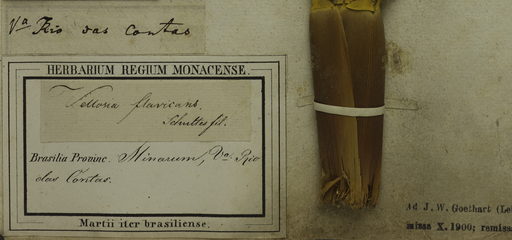 Va Rio das Contas
HERBARIUM REGIUM MONACENSE.
Vellosia flavicans.
Schultes fil.
Brasilia Provinc. Minarum, Va Rio
das Contas.
Martii iter brasiliense.
Ad J. W. Goethart (Le
missa X. 1900; remiss